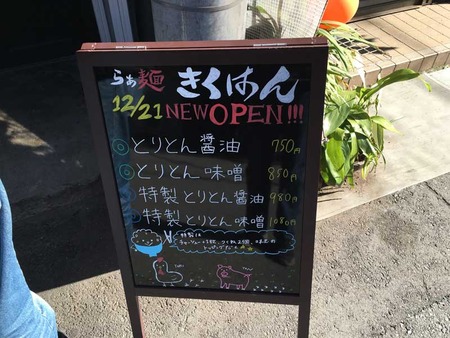 らぁ麺 きくはん
12/21 NEW OPEN!!!
◎とりとん 醤油 750円
◎とりとん 味噌 850円
特製 とりとん 醤油 980円
特製 とりとん 味噌 1080円
特製は